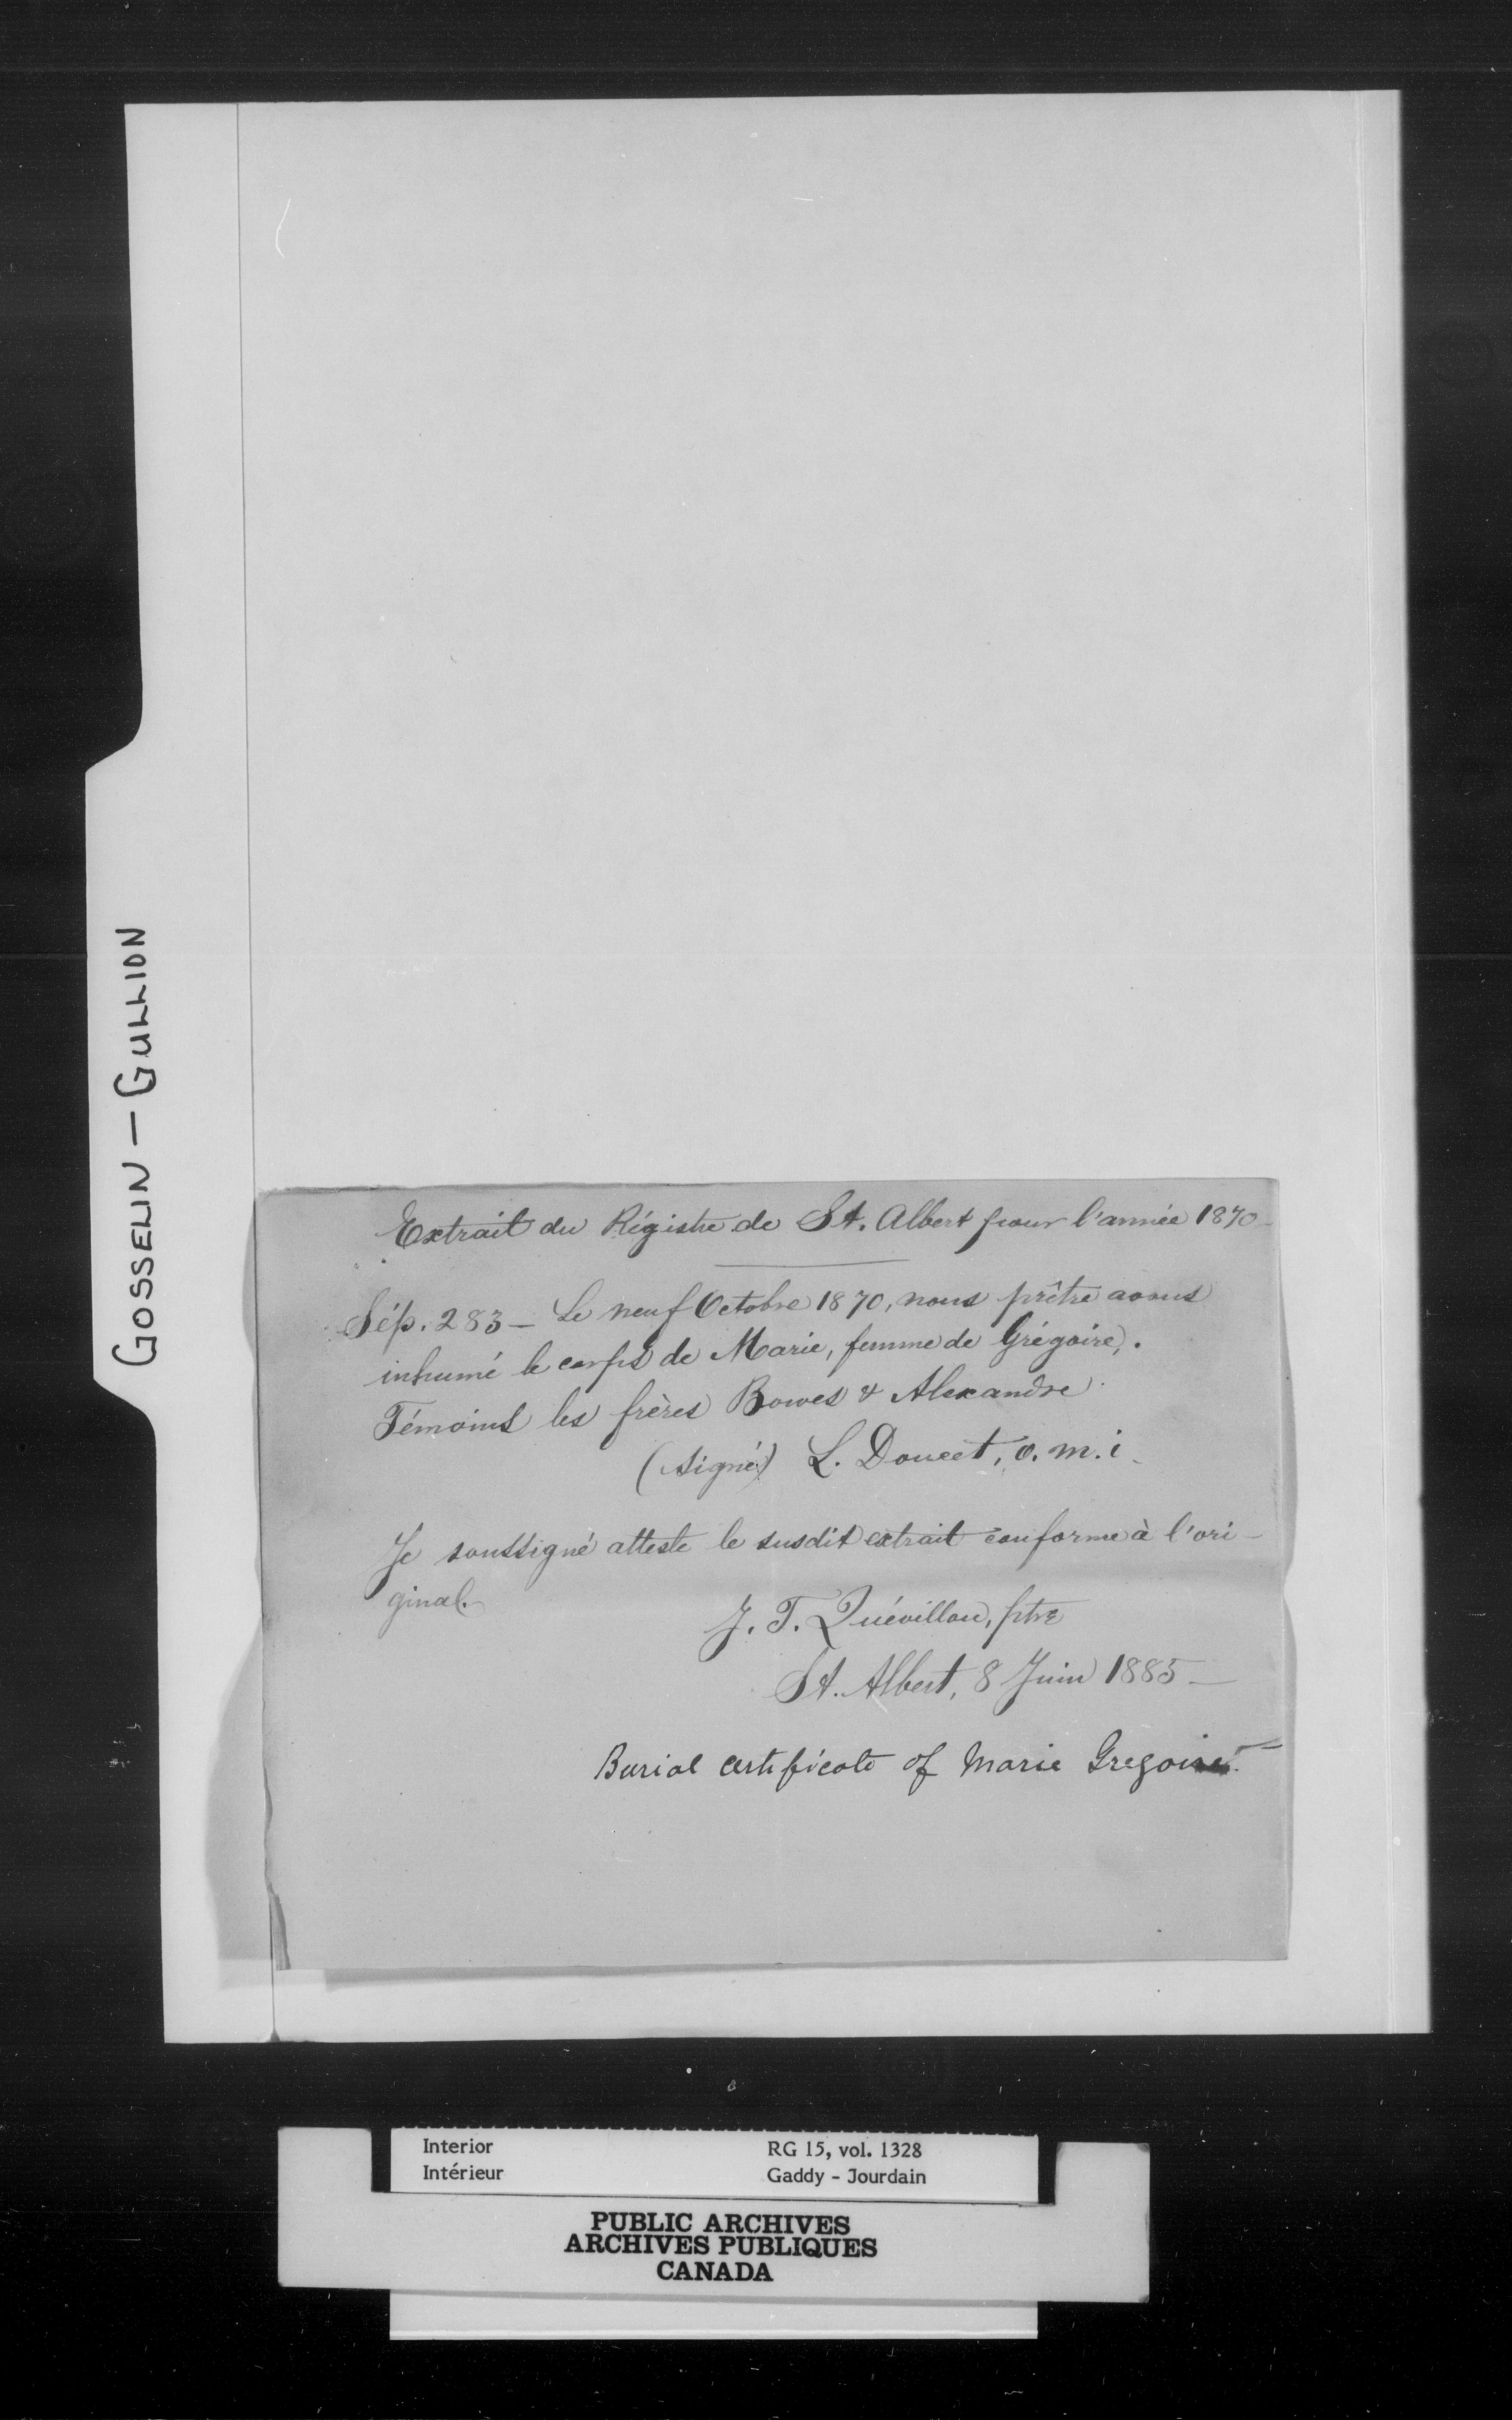 GOSSELIN — GULLION
Extrait du Régistre de St. Albert pour l'année 1870 —
Sép. 283 — Le neuf Octobre 1870, nous prêtre avons
inhumé le corps de Marie, femme de Grégoire.
Témoins les frères Bowes & Alexandre
(signé) L. Doucet, o. m. i.
Je soussigné atteste le susdit extrait conforme à l'ori-
ginal.
J. T. Quévillon, ptre
St. Albert, 8 Juin 1885 —
Burial certificate of Marie Gregoire.
Interior RG 15, vol. 1328
Intérieur Gaddy - Jourdain
PUBLIC ARCHIVES
ARCHIVES PUBLIQUES
CANADA